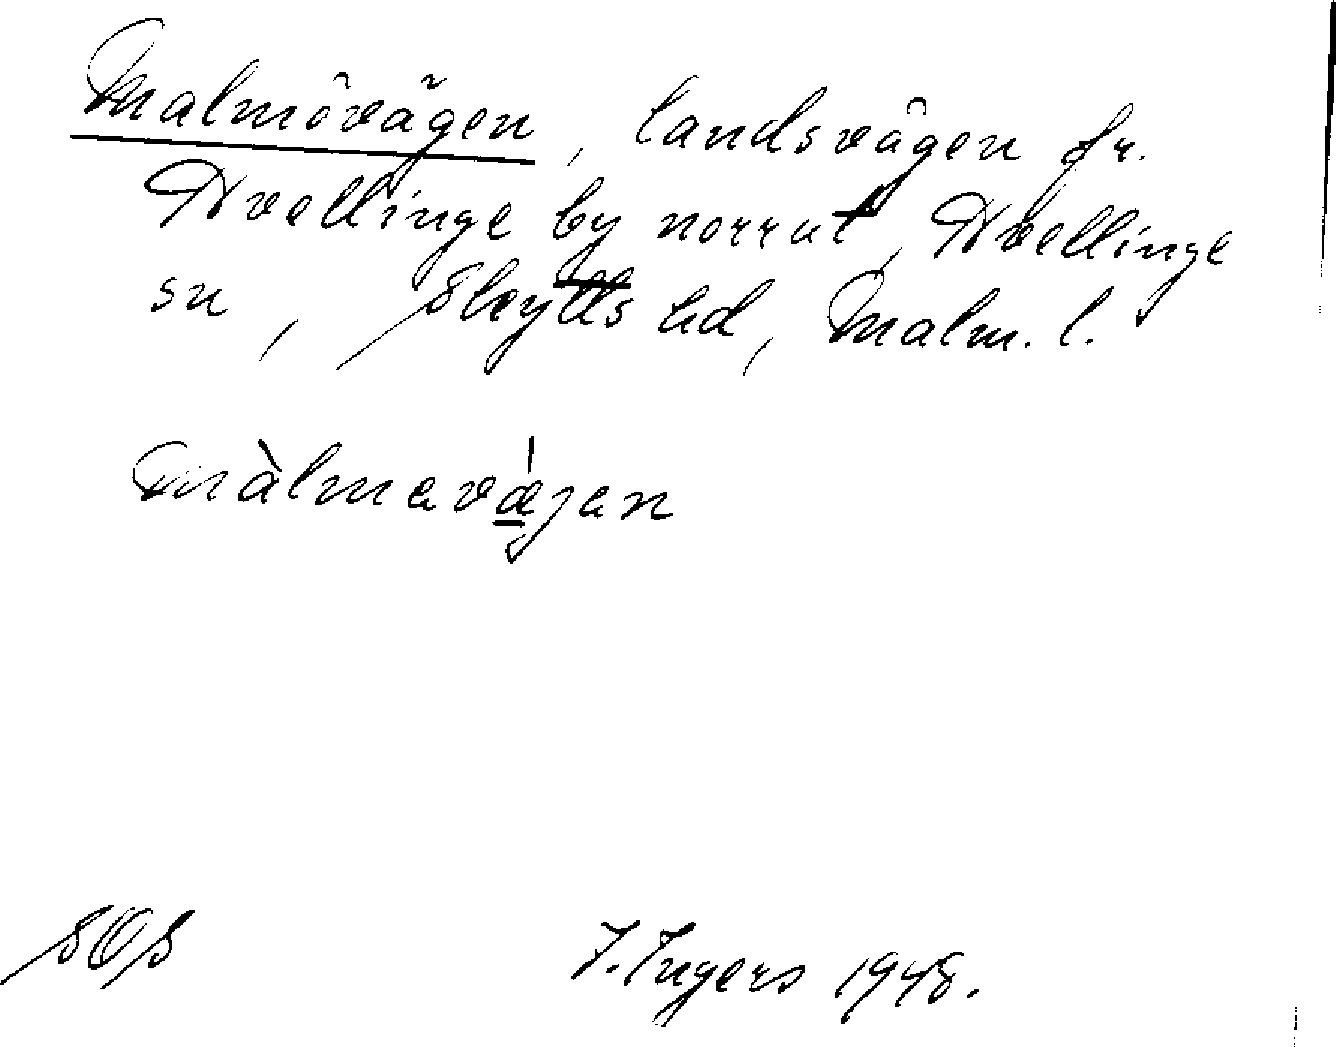 Malmövägen, landsvägen fr.
Hvellinge by norrut, Hvellinge
sn, Skytts hd, Malm. l.
màlmavǽjen
SOS J. Ingers 1948.